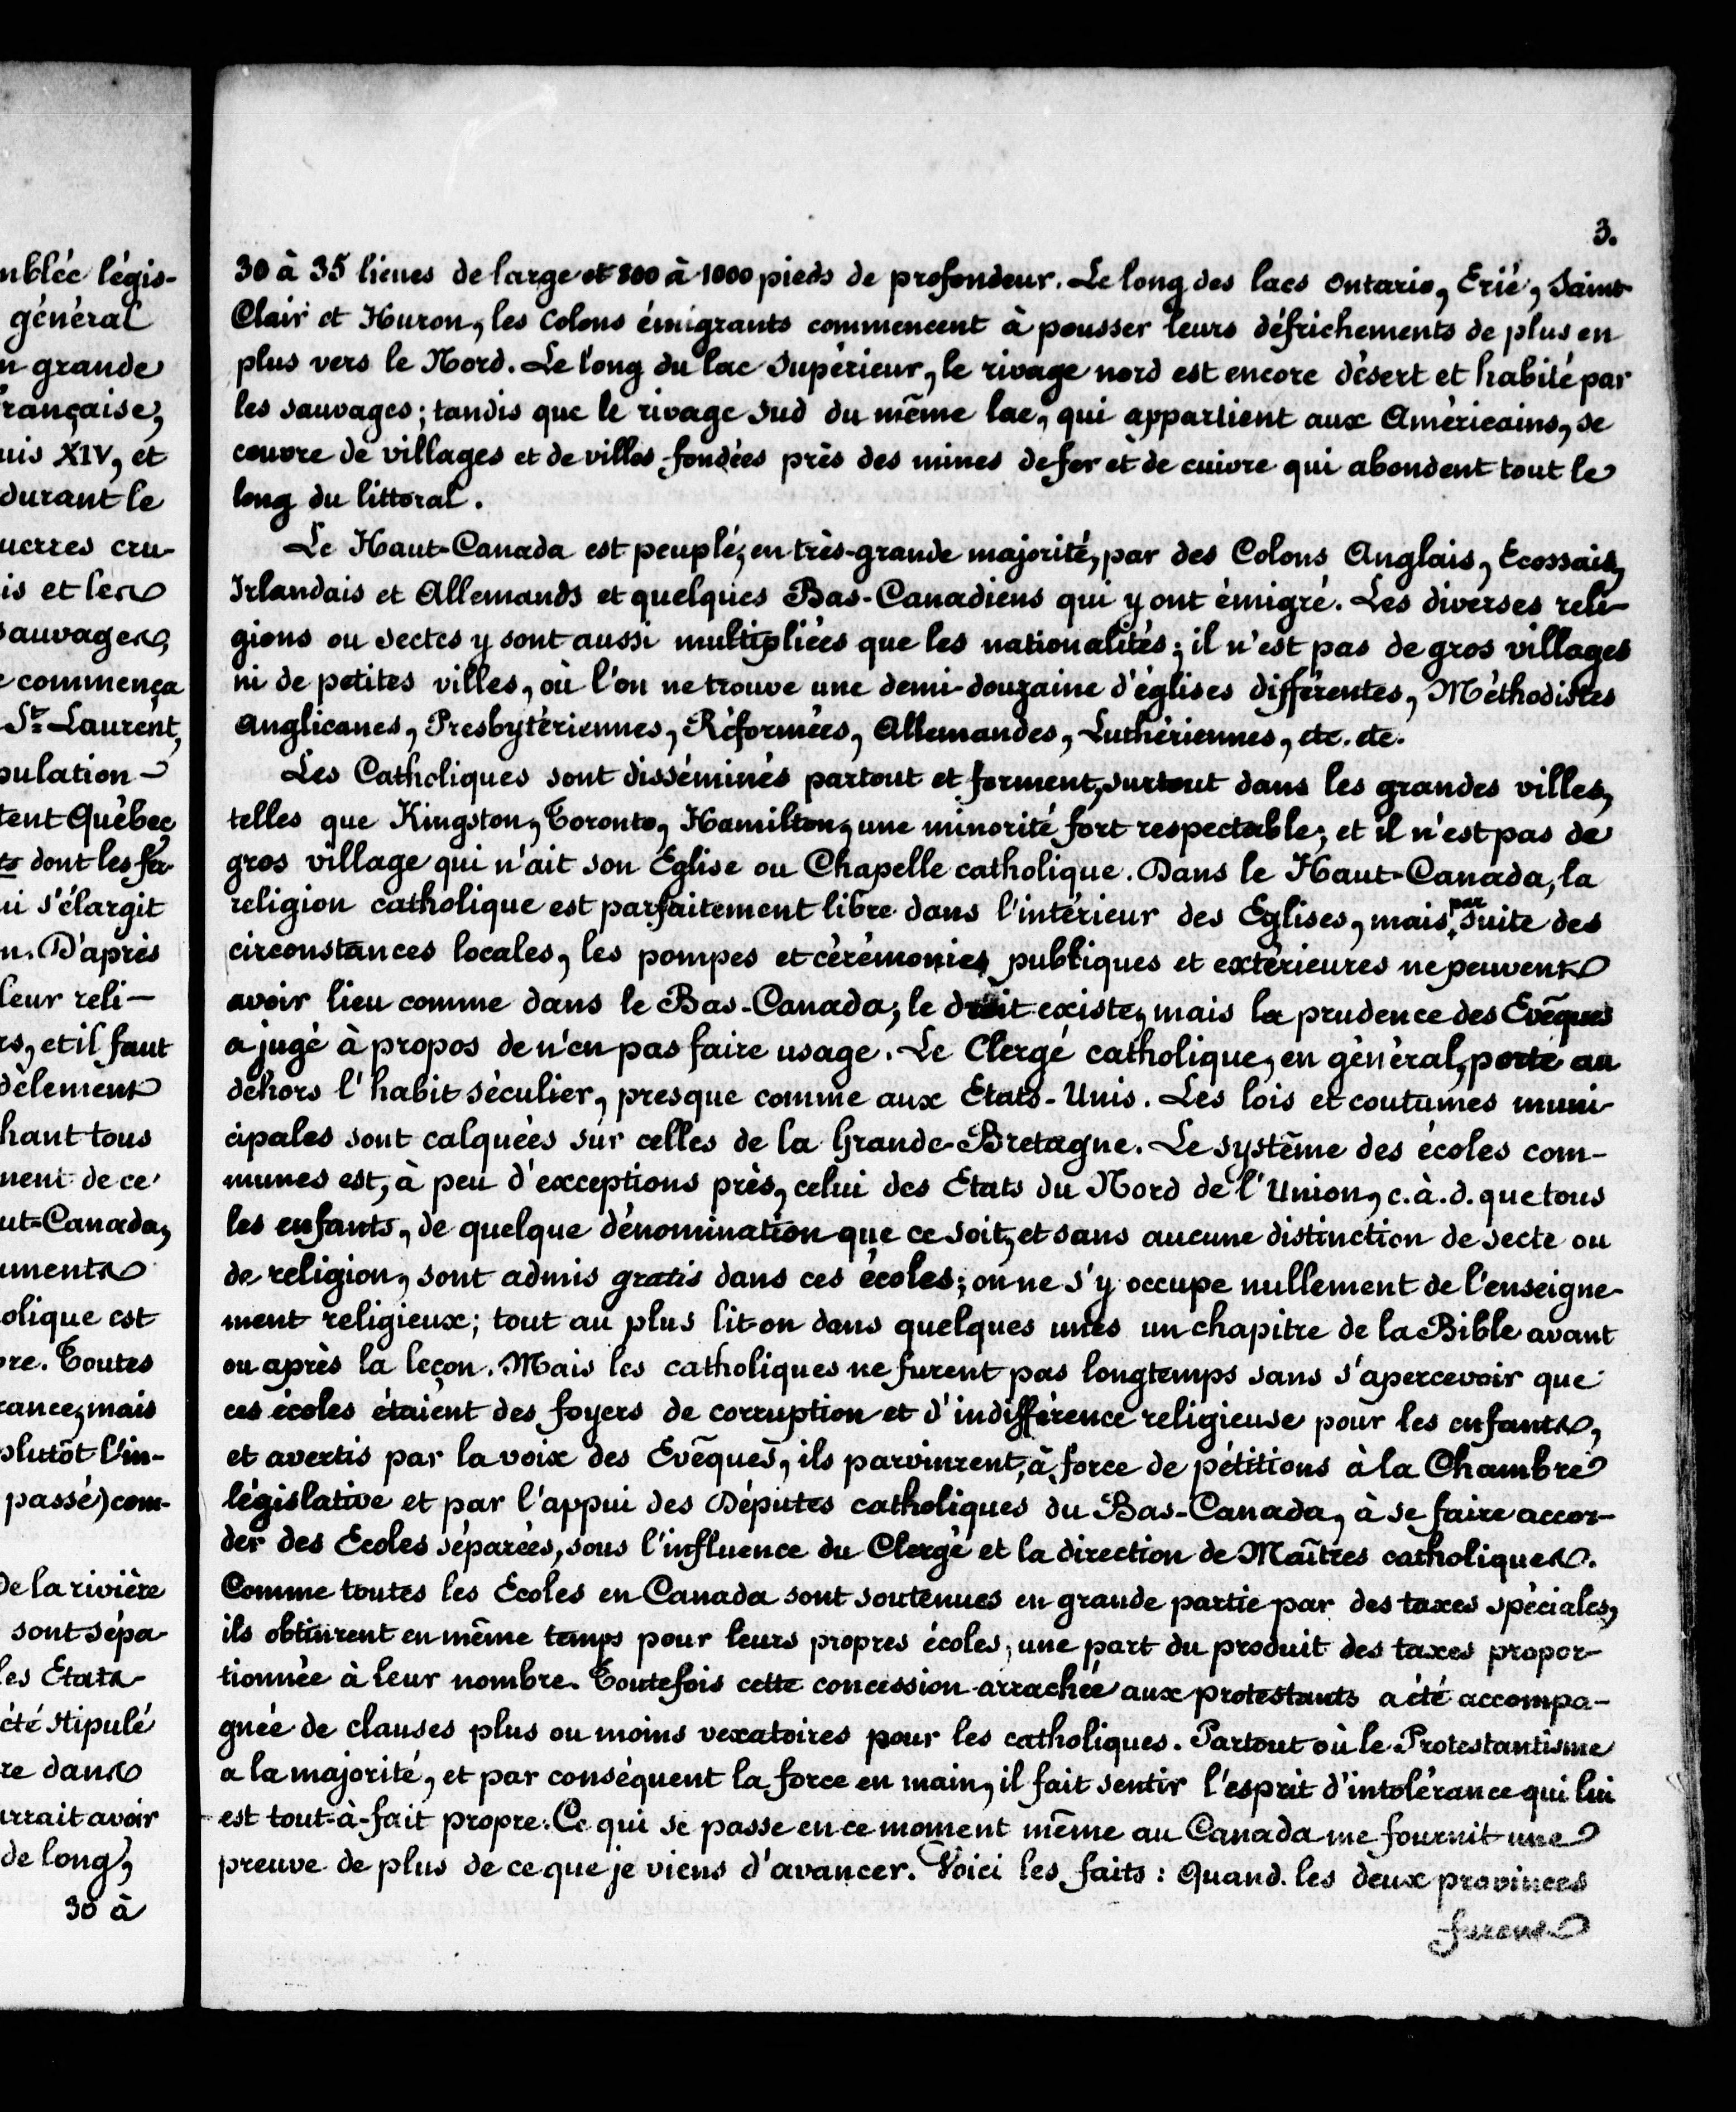 mblée légis-
général
n grande
rançaise,
uis XIV, et
durant le
uerres cru-
is et les
sauvages,
e commença
St Laurent,
pulation -
tent Québec
ts dont les fer-
ui s'élargit
n. D'après
leur reli-
rs, et il faut
dèlement
hant tous
ment de ce
ut-Canada,
uments
olique est
re. Toutes
rance, mais
plutôt l'in-
passé) com-
De la rivière
sont sépa-
les Etats-
été stipulé
re dans
urrait avoir
de long,
30 à
3.
30 à 35 lieues de large et 800 à 1000 pieds de profondeur. Le long des lacs Ontario, Erié, Saint
Clair et Huron, les colons émigrants commencent à pousser leurs défrichements de plus en
plus vers le Nord. Le long du lac Supérieur, le rivage nord est encore désert et habité par
les sauvages; tandis que le rivage sud du même lac, qui appartient aux Américains, se
couvre de villages et de villes fondées près des mines de fer et de cuivre qui abondent tout le
long du littoral.
Le Haut-Canada est peuplé, en très-grande majorité, par des Colons Anglais, Ecossais,
Irlandais et Allemands et quelques Bas-Canadiens qui y ont émigré. Les diverses reli-
gions ou sectes y sont aussi multipliées que les nationalités; il n'est pas de gros villages
ni de petites villes, où l'on ne trouve une demi-douzaine d'églises différentes, Méthodistes
Anglicanes, Presbytériennes, Réformées, Allemandes, Luthériennes, etc. etc.
Les Catholiques sont disséminés partout et forment, surtout dans les grandes villes,
telles que Kingston, Toronto, Hamilton, une minorité fort respectable; et il n'est pas de
gros village qui n'ait son Eglise ou Chapelle catholique. Dans le Haut-Canada, la
religion catholique est parfaitement libre dans l'intérieur des Eglises, mais, par suite des
circonstances locales, les pompes et cérémonies publiques et extérieures ne peuvent
avoir lieu comme dans le Bas-Canada; le droit existe, mais la prudence des Evêques
a jugé à propos de n'en pas faire usage. Le Clergé catholique, en général, porte au
déhors l'habit séculier, presque comme aux Etats-Unis. Les lois et coutumes muni-
cipales sont calquées sur celles de la Grande-Bretagne. Le système des écoles com-
munes est, à peu d'exceptions près, celui des Etats du Nord de l'Union, c.à.d. que tous
les enfants, de quelque dénomination que ce soit, et sans aucune distinction de secte ou
de religion, sont admis gratis dans ces écoles; on ne s'y occupe nullement de l'enseigne-
ment religieux; tout au plus lit-on dans quelques unes un chapitre de la Bible avant
ou après la leçon. Mais les catholiques ne furent pas longtemps sans s'apercevoir que
ces écoles étaient des foyers de corruption et d'indifférence religieuse pour les enfants,
et avertis par la voix des Evêques, ils parvinrent, à force de pétitions à la Chambre
législative et par l'appui des Députés catholiques du Bas-Canada, à se faire accor-
der des Ecoles séparées, sous l'influence du Clergé et la direction de Maîtres catholiques.
Comme toutes les Ecoles en Canada sont soutenues en grande partie par des taxes spéciales,
ils obtinrent en même temps pour leurs propres écoles, une part du produit des taxes propor-
tionnée à leur nombre. Toutefois cette concession arrachée aux protestants a été accompa-
gnée de clauses plus ou moins vexatoires pour les catholiques. Partout où le Protestantisme
a la majorité, et par conséquent la force en main, il fait sentir l'esprit d'intolérance qui lui
est tout-à-fait propre. Ce qui se passe en ce moment même au Canada me fournit une
preuve de plus de ce que je viens d'avancer. Voici les faits: Quand les deux provinces
furent